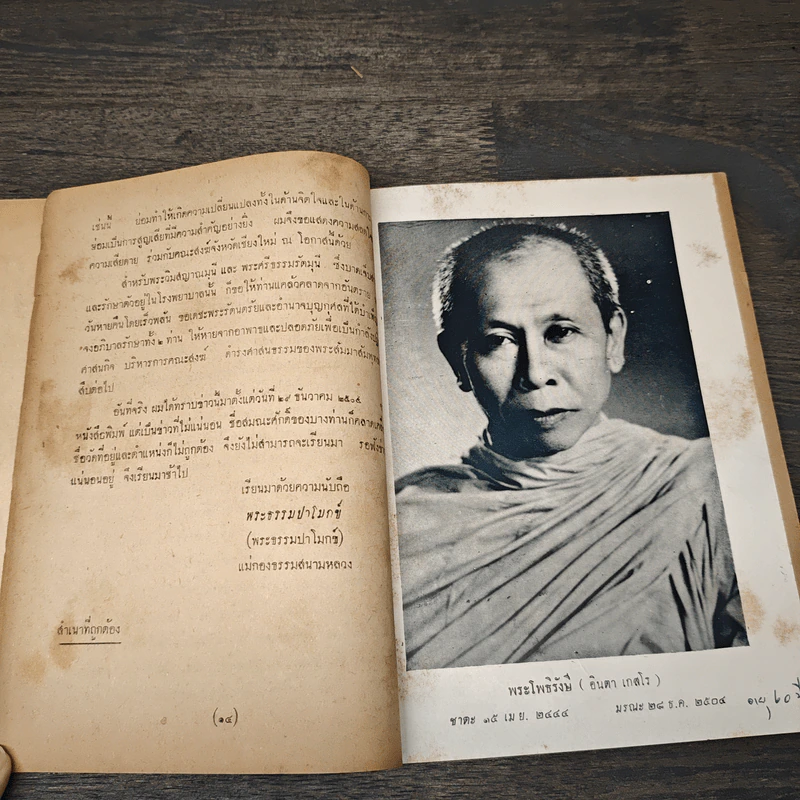 เช่นนี้ ย่อมทำให้เกิดความเปลี่ยนแปลงทั้งในด้านจิตใจและในด้าน
ย่อมเป็นการสูญเสียที่มีความสำคัญอย่างยิ่ง ผมจึงขอแสดงความ
ความเสียดาย ร่วมกับคณะสงฆ์จังหวัดเชียงใหม่ ณ โอกาสนี้ด้วย
สำหรับพระวิมลญาณมุนี และ พระศรีธรรมรัตมุนี ซึ่งบาดเจ็บ
และรักษาตัวอยู่ในโรงพยาบาลนั้น ก็ขอให้ท่านแคล้วคลาดจากอันตราย
วันหายคืนโดยเร็วพลัน ขอเดชะพระรัตนตรัยและอำนาจบุญกุศลที่ได้
จงอภิบาลรักษาทั้ง ๒ ท่าน ให้หายจากอาพาธและปลอดภัยเพื่อเป็นกำลัง
ศาสนกิจ บริหารการคณะสงฆ์ ดำรงศาสนธรรมของพระสัมมาสัมพุทธ
สืบต่อไป
อันที่จริง ผมได้ทราบข่าวนี้มาตั้งแต่วันที่ ๒๙ ธันวาคม ๒๕๐๔
หนังสือพิมพ์ แต่เป็นข่าวที่ไม่แน่นอน ชื่อสมณะศักดิ์ของบางท่านก็คลาดเคลื่อน
ชื่อวัดที่อยู่และตำแหน่งก็ไม่ถูกต้อง จึงยังไม่สามารถจะเรียนมา รอฟัง
แน่นอนอยู่ จึงเรียนมาช้าไป
เรียนมาด้วยความนับถือ
พระธรรมปาโมกข์
(พระธรรมปาโมกข์)
แม่กองธรรมสนามหลวง
สำเนาที่ถูกต้อง
(๑๔)
พระโพธิรังษี ( อินตา เกสโร )
ชาตะ ๑๕ เม.ย. ๒๔๔๔ มรณะ ๒๘ ธ.ค. ๒๕๐๔ อายุ ๖๐ ปี